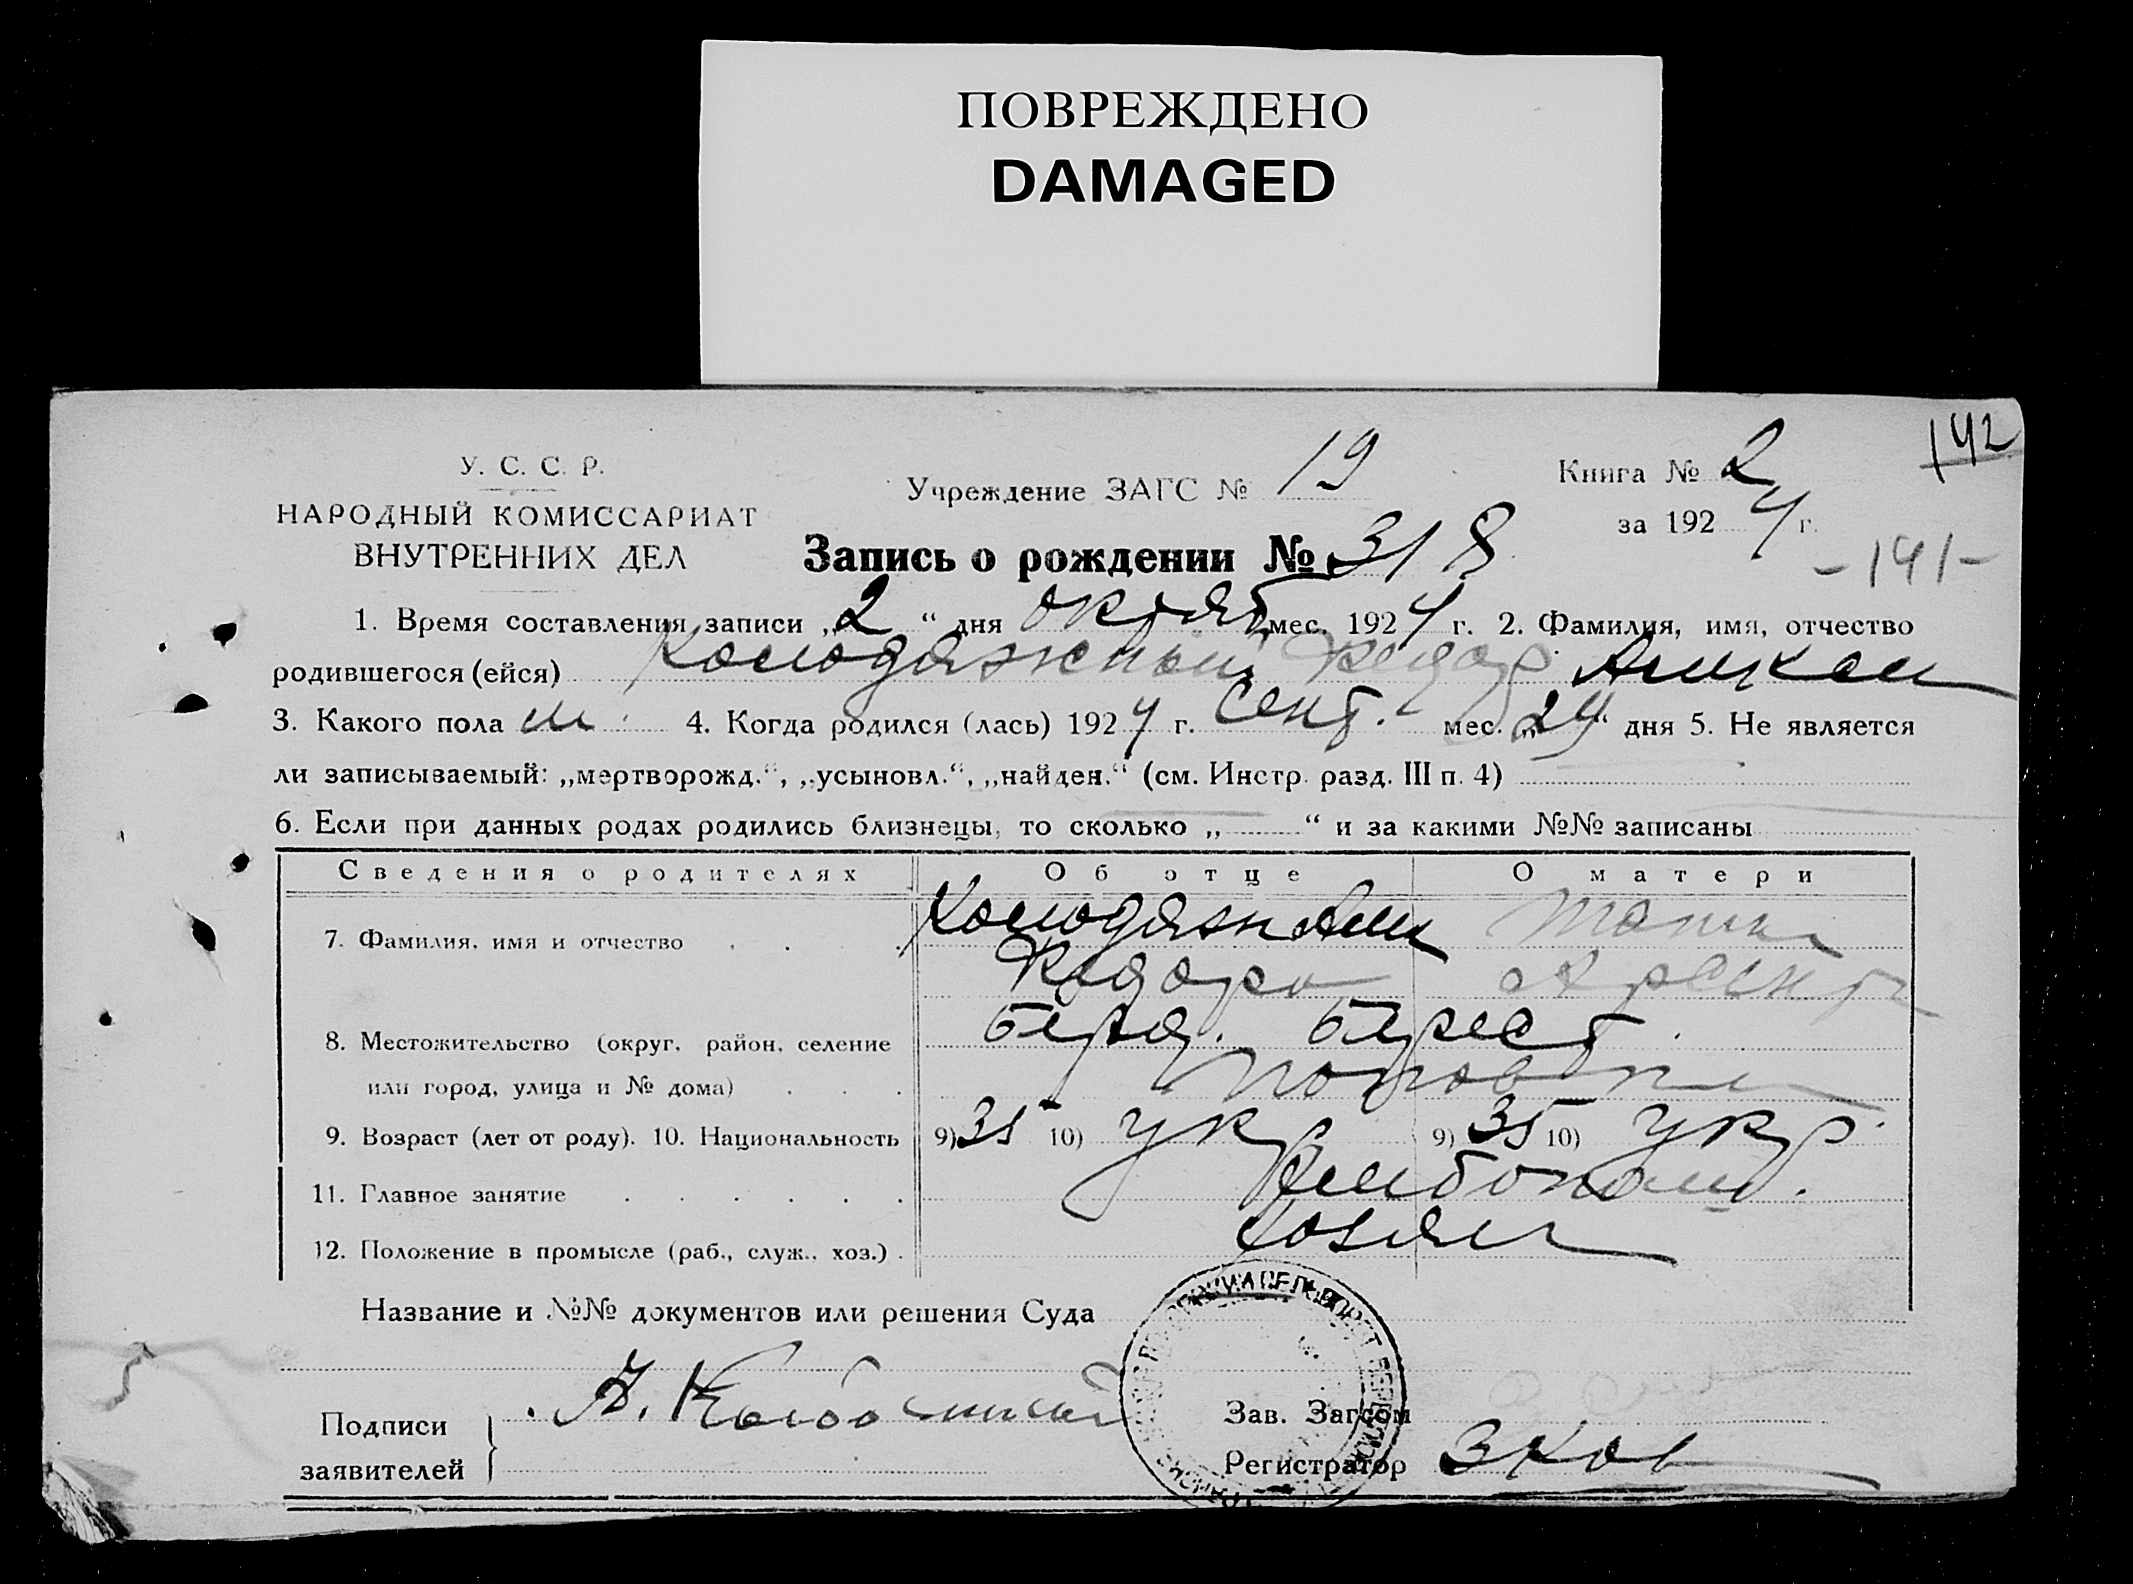 ПОВРЕЖДЕНО
DAMAGED
142
У. С. С. Р.
НАРОДНЫЙ КОМИССАРИАТ
ВНУТРЕННИХ ДЕЛ
Учреждение ЗАГС № 19
Книга № 2
за 1924 г.
-141-
Запись о рождении № 318
1. Время составления записи „2“ дня октяб мес. 1924 г. 2. Фамилия, имя, отчество
родившегося (ейся) Колодяжный Федор
3. Какого пола м. 4. Когда родился (лась) 1924 г. Сент. мес. „24“ дня 5. Не является
ли записываемый: „мертворожд.“, „усыновл.“, „найден.“ (см. Инстр. разд. III п. 4)
6. Если при данных родах родились близнецы, то сколько „ “ и за какими №№ записаны
Сведения о родителях Об отце О матери
7. Фамилия, имя и отчество Колодяжн
Федоро
8. Местожительство (округ, район, селение Берд. Берест.
или город, улица и № дома)
9. Возраст (лет от роду). 10. Национальность 9) 35 10) укр 9) 35 10) укр.
11. Главное занятие хлебопаш.
12. Положение в промысле (раб., служ., хоз.) хозяин
Название и №№ документов или решения Суда
Подписи
заявителей
Зав. Загсом
Регистратор